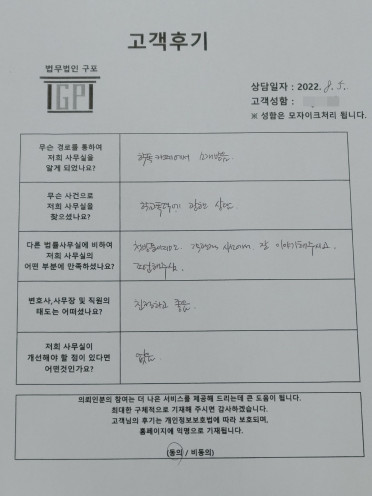 고객후기
법무법인 구포
GP
상담일자 : 2022. 8. 5.
고객성함 :
※ 성함은 모자이크처리 됩니다.
무슨 경로를 통하여
저희 사무실을
알게 되었나요?
학폭 카페에서 소개받음
무슨 사건으로
저희 사무실을
찾으셨나요?
학교폭력에 관한 상담
다른 법률사무실에 비하여
저희 사무실의
어떤 부분에 만족하셨나요?
객관적 시선에서 잘 이야기해주시고,
변호사,사무장 및 직원의
태도는 어떠셨나요?
친절하고 좋음
저희 사무실이
개선해야 할 점이 있다면
어떤것인가요?
없음
의뢰인분의 참여는 더 나은 서비스를 제공해 드리는데 큰 도움이 됩니다.
최대한 구체적으로 기재해 주시면 감사하겠습니다.
고객님의 후기는 개인정보보호법에 따라 보호되며,
홈페이지에 익명으로 기재됩니다.
(동의 / 비동의)